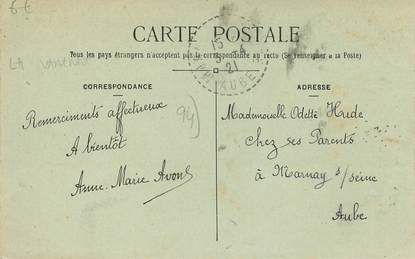 6€
CARTE POSTALE
Tous les pays étrangers n'acceptent pas la correspondance au recto (Se renseigner à la Poste)
15 4
21
AUBE
CORRESPONDANCE
Remerciments affectueux
A bientôt
Anne. Marie
94)
ADRESSE
Mademoiselle Odette Hude
chez ses Parents
à Marnay s/seine
Aube